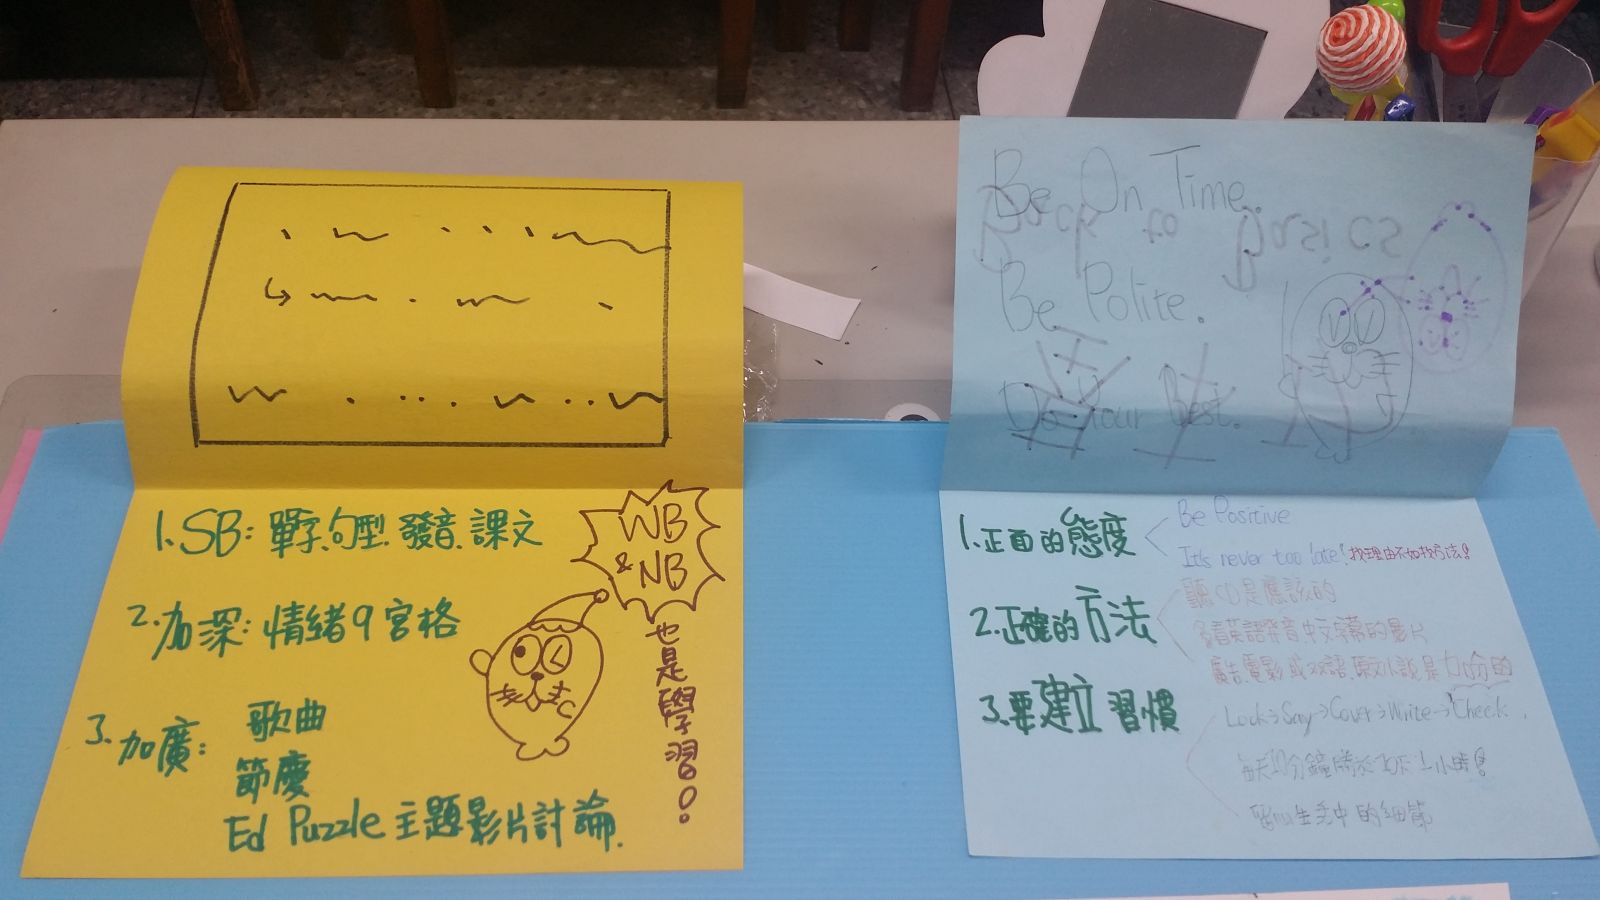 1. SB: 單字.句型.發音.課文
2. 加深: 情緒9宮格
3. 加廣: 歌曲
節慶
Ed Puzzle 主題影片討論.
WB
& NB
也是學習。
Be On Time.
Back to Basics
Be Polite.
Do Your Best.
1.正面的態度
Be Positive
It's never too late! 找理由不如找方法!
2.正確的方法
聽CD是應該的
多看英語發音中文字幕的影片
廣告、電影或双語、原文小說是加分的
3.要建立習慣
Look→Say→Cover→Write→Check.
每天10分鐘勝於1天1小時!
生活中的細節